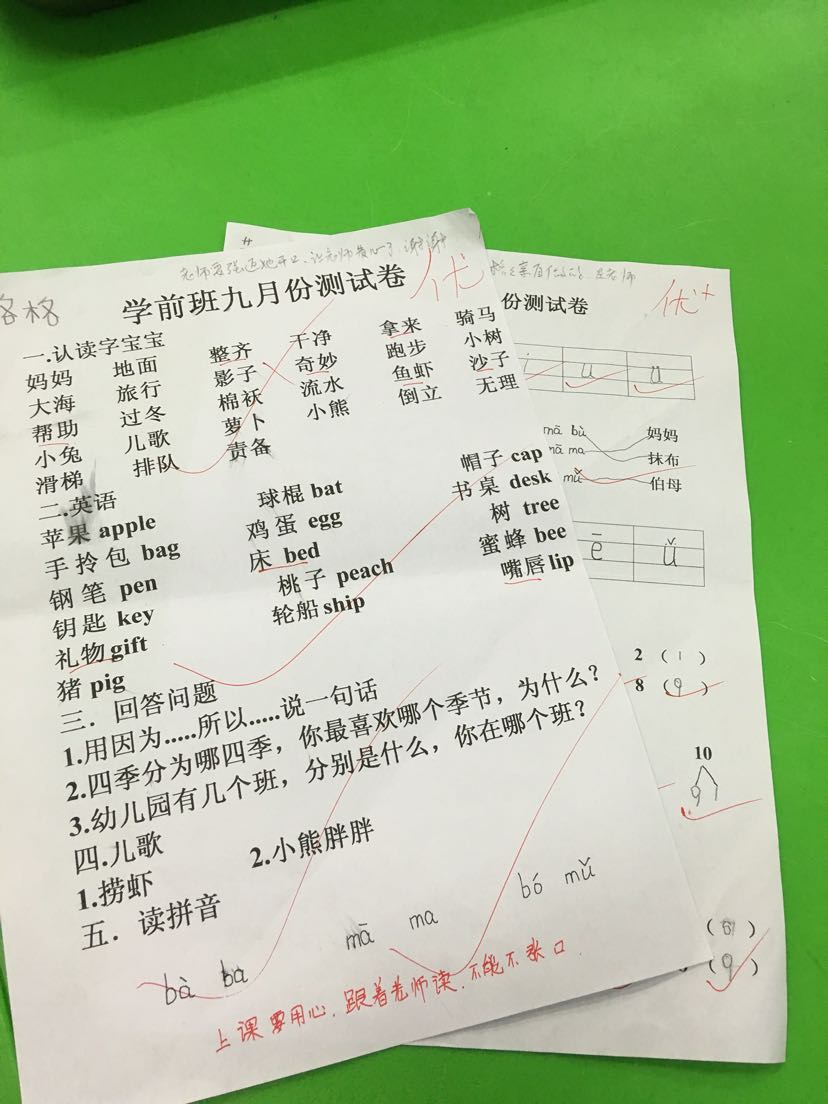 格格
老师要强迫她开口，让老师费心了，谢谢
优
学前班九月份测试卷
一.认读字宝宝
妈妈 地面 整齐 干净 拿来 骑马
大海 旅行 影子 奇妙 跑步 小树
帮助 过冬 棉袄 流水 鱼虾 沙子
小兔 儿歌 萝卜 小熊 倒立 无理
滑梯 排队 责备
二.英语
苹果 apple 球棍 bat 帽子 cap
手拎包 bag 鸡蛋 egg 书桌 desk
钢笔 pen 床 bed 树 tree
钥匙 key 桃子 peach 蜜蜂 bee
礼物 gift 轮船 ship 嘴唇 lip
猪 pig
三．回答问题
1.用因为.....所以.....说一句话
2.四季分为哪四季，你最喜欢哪个季节，为什么？
3.幼儿园有几个班，分别是什么，你在哪个班？
四.儿歌
1.捞虾 2.小熊胖胖
五．读拼音
bà ba mā ma bó mǔ
上课要用心，跟着老师读，不能不张口.
老师
优+
份测试卷
i u ü
mā bù 妈妈
mā ma 抹布
mǔ 伯母
ē ǔ
2 ( 1 )
8 ( 9 )
10
9 1
( 9 )